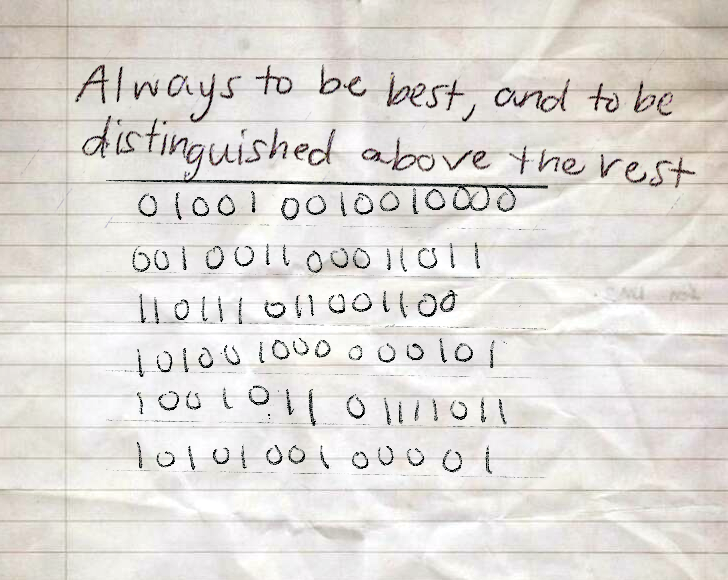 Always to be best, and to be
distinguished above the rest
01001 0010010000
0010011 00011011
110111 011001100
101001000 000101
1001011 01111011
10101001 00001